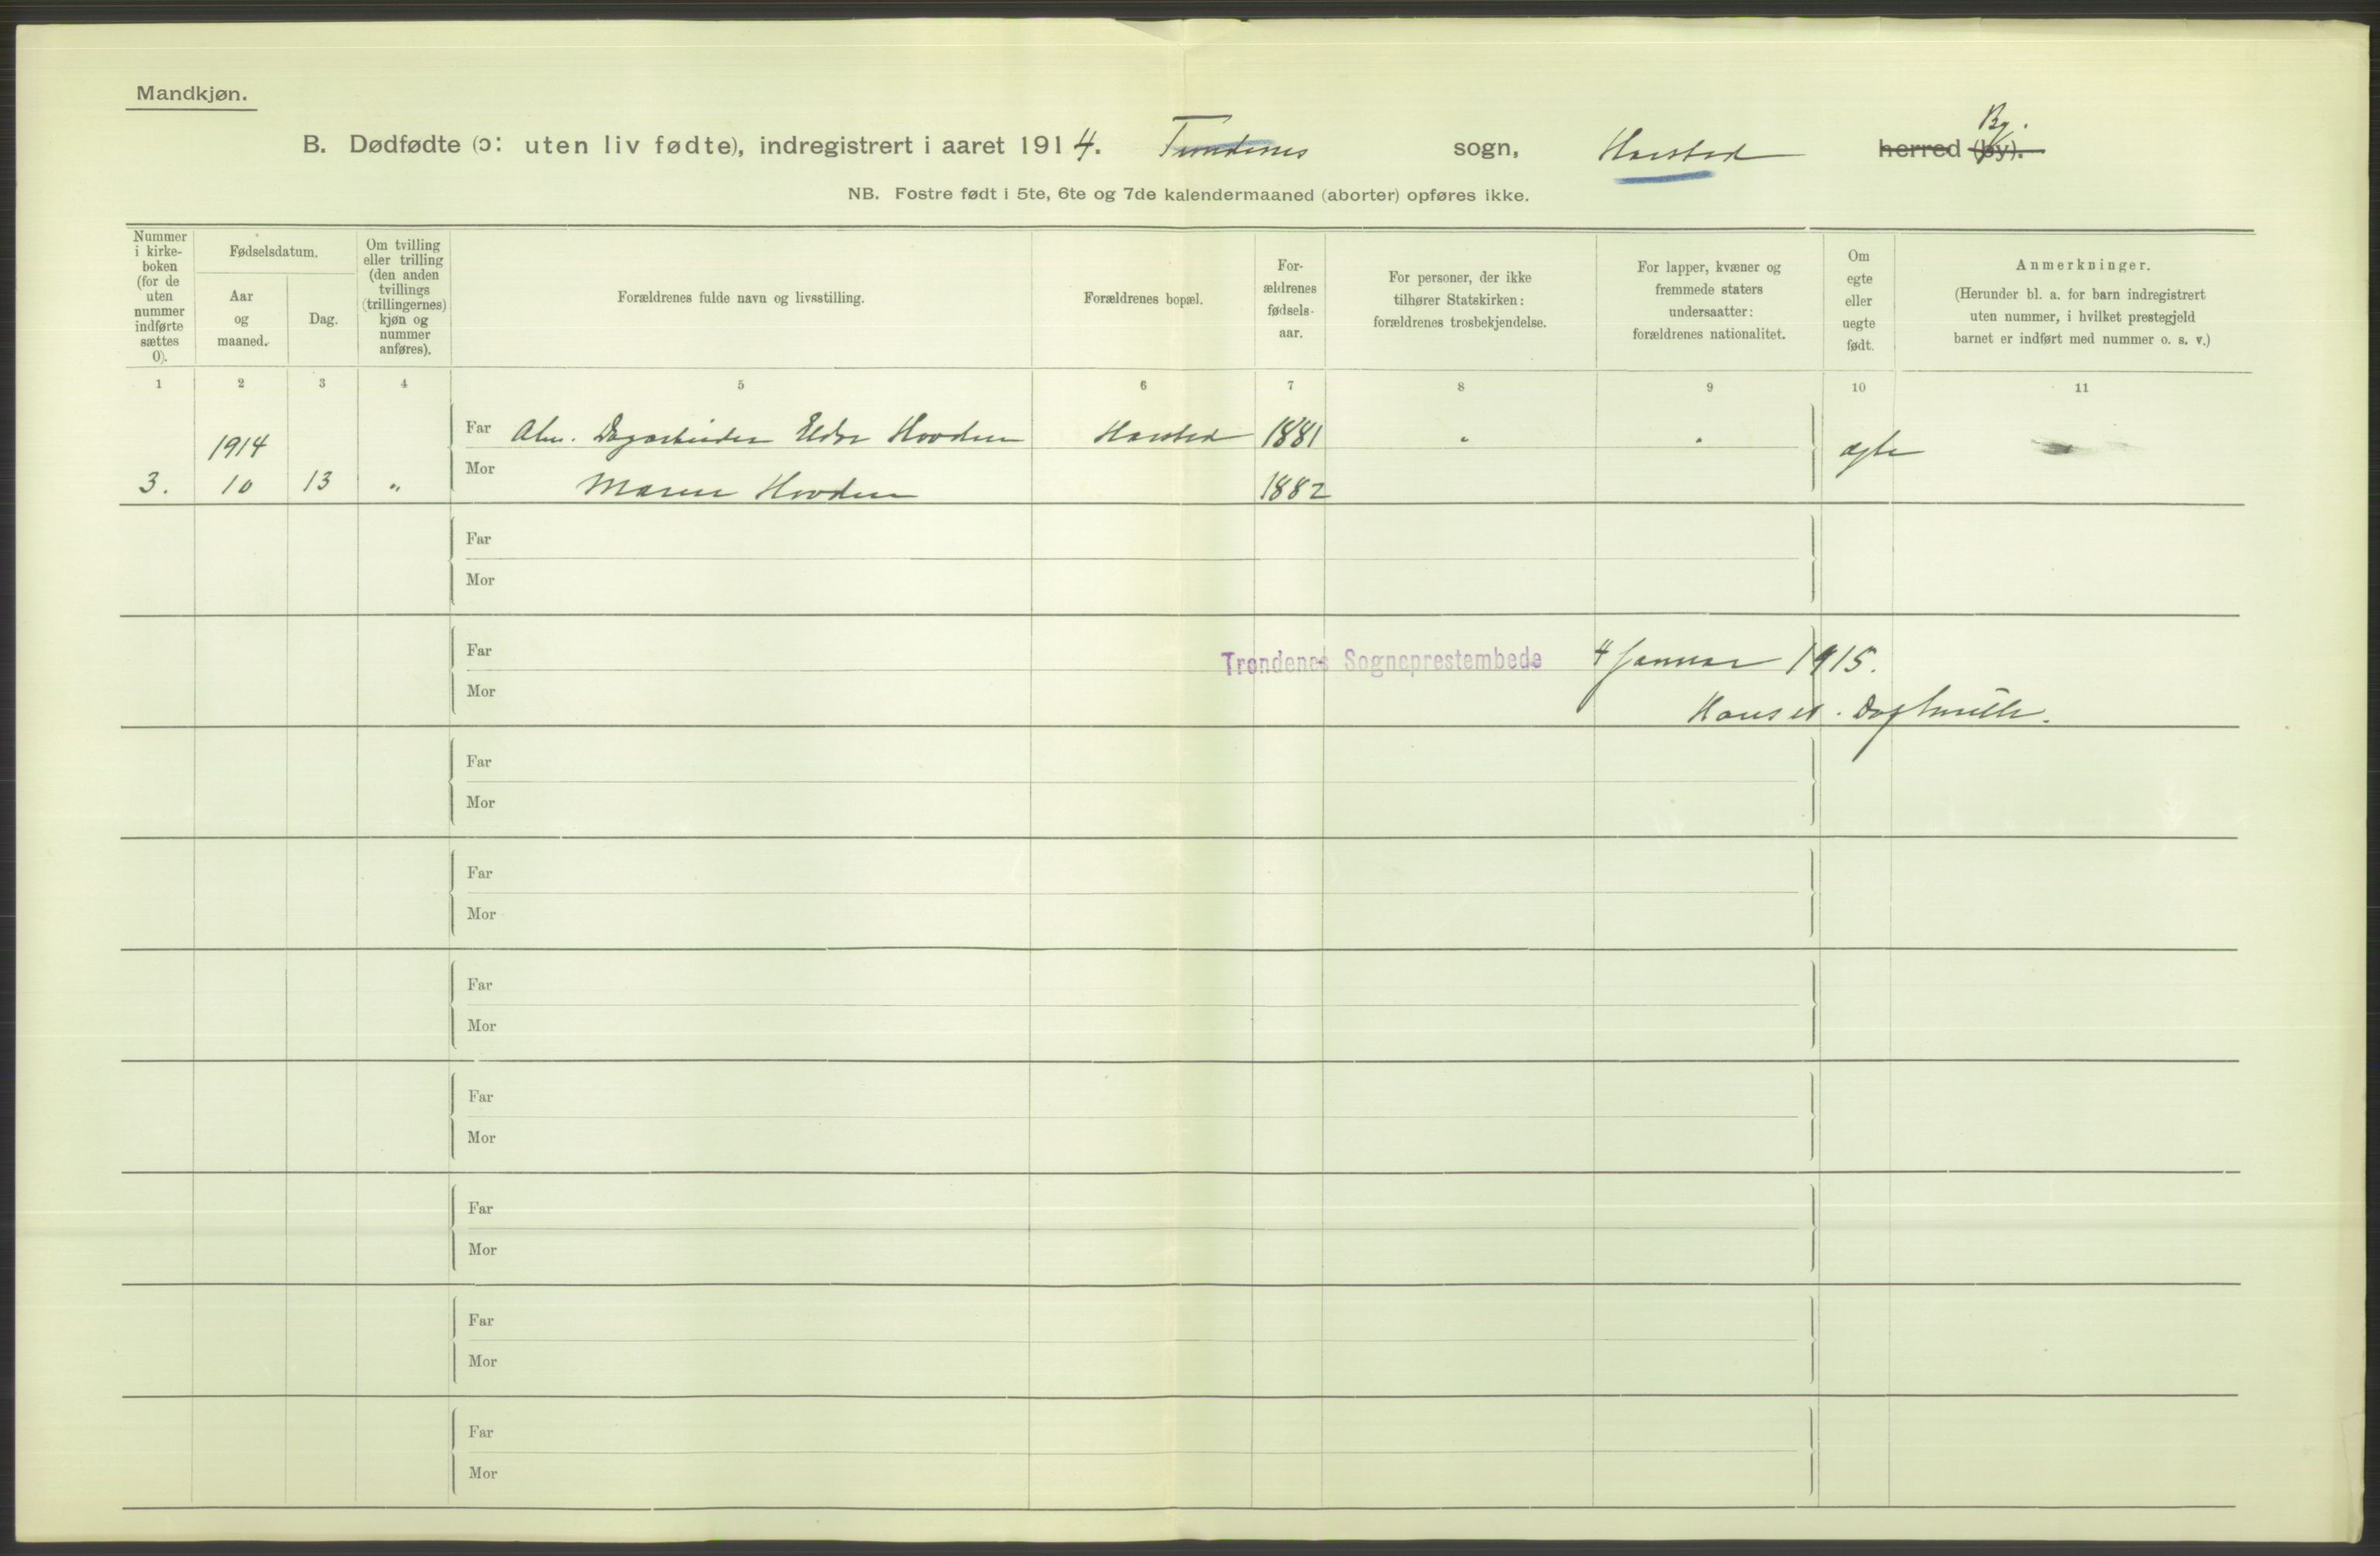 Mandkjøn.
B. Dødfødte (ɔ: uten liv fødte), indregistrert i aaret 1914. Trondenes sogn, Harstad herred (by). By.
NB. Fostre født i 5te, 6te og 7de kalendermaaned (aborter) opføres ikke.
Nummer
i kirke-
boken
(for de
uten
nummer
indførte
sættes
0).
Fødselsdatum.
Aar
og
maaned.
Dag.
Om tvilling
eller trilling
(den anden
tvillings
(trillingernes)
kjøn og
nummer
anføres).
Forældrenes fulde navn og livsstilling.
Forældrenes bopæl.
For-
ældrenes
fødsels-
aar.
For personer, der ikke
tilhører Statskirken:
forældrenes trosbekjendelse.
For lapper, kvæner og
fremmede staters
undersaatter:
forældrenes nationalitet.
Om
egte
eller
uegte
født.
Anmerkninger.
(Herunder bl. a. for barn indregistrert
uten nummer, i hvilket prestegjeld
barnet er indført med nummer o. s. v.)
1 2 3 4 5 6 7 8 9 10 11
1914
Far Alm. Dagarbeider Hovden Harstad 1881 " "
3. 10 13 " Mor Maren Hovden 1882 ægte
Far
Mor
Far Trondenes Sogneprestembede 4 Januar 1915.
Mor
Far
Mor
Far
Mor
Far
Mor
Far
Mor
Far
Mor
Far
Mor
Far
Mor